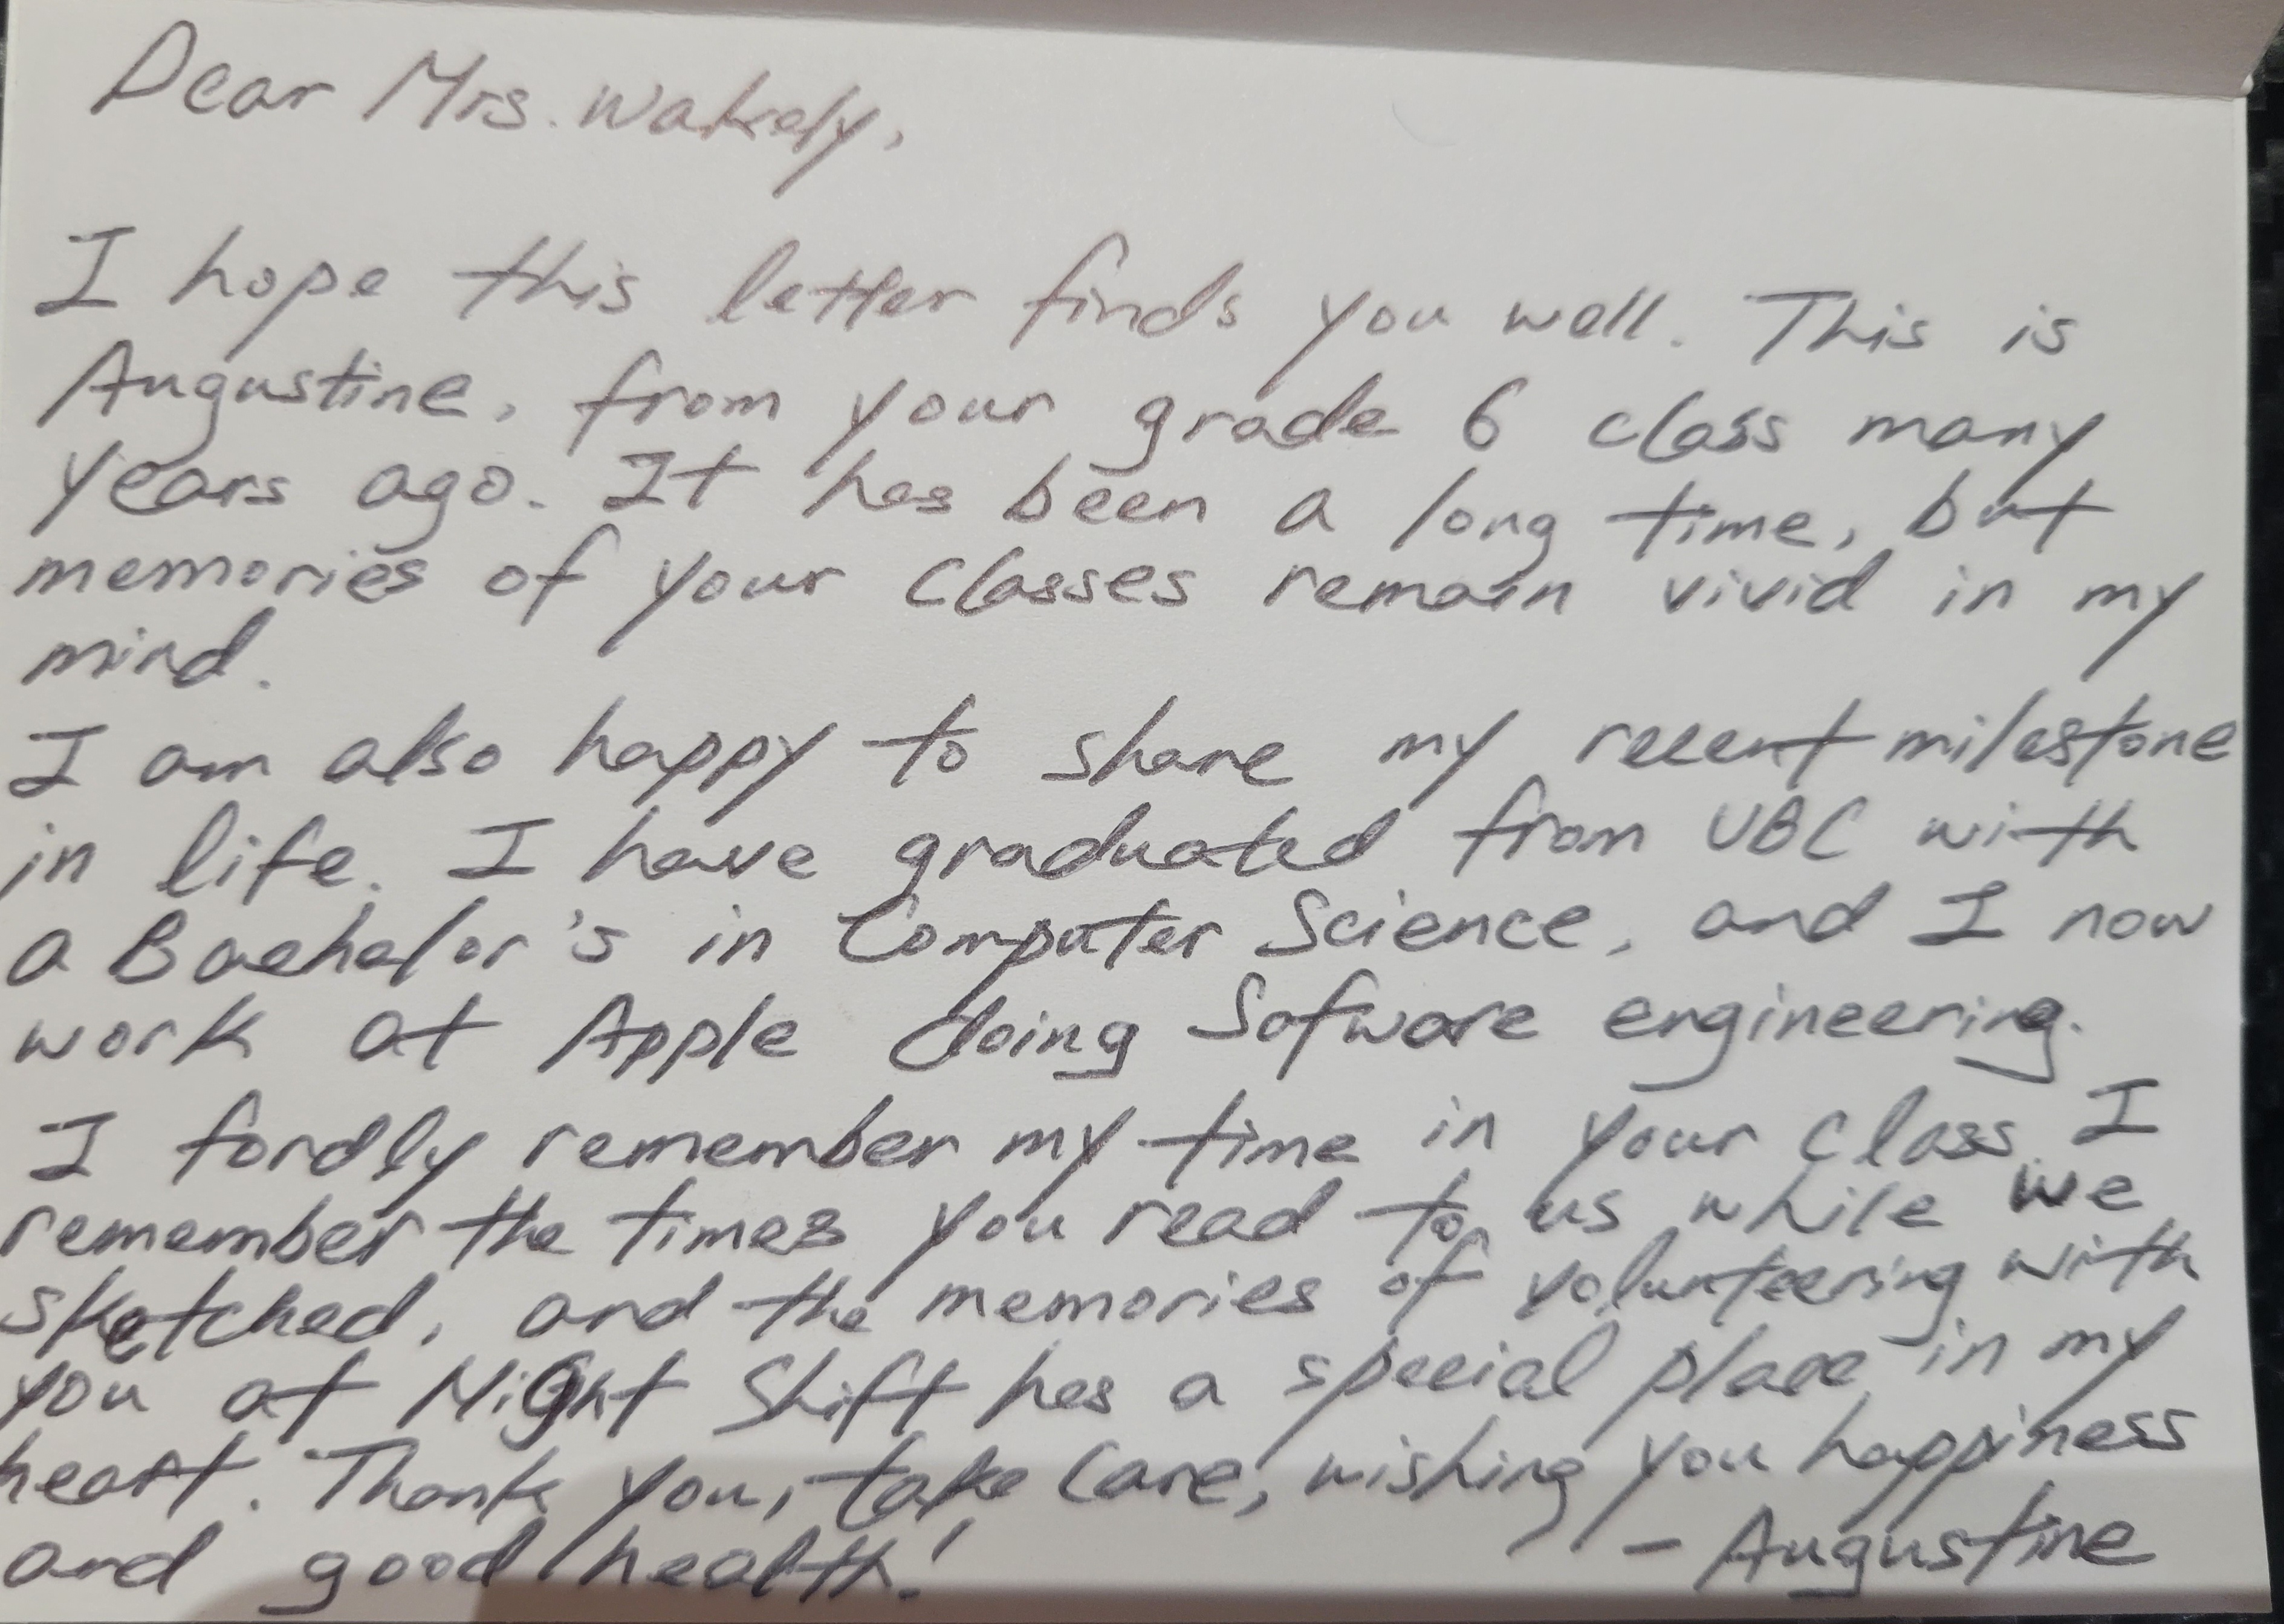 Dear Mrs. Wakely,
I hope this letter finds you well. This is
Augustine, from your grade 6 class many
years ago. It has been a long time, but
memories of your classes remain vivid in my
mind.
I am also happy to share my recent milestone
in life. I have graduated from UBC with
a Bachelor's in Computer Science, and I now
work at Apple doing Sofware engineering.
I fondly remember my time in your class. I
remember the times you read to us while we
sketched, and the memories of volunteering with
you at Night Shift has a special place in my
heart. Thank you, take care, wishing you happiness
and good health!
- Augustine